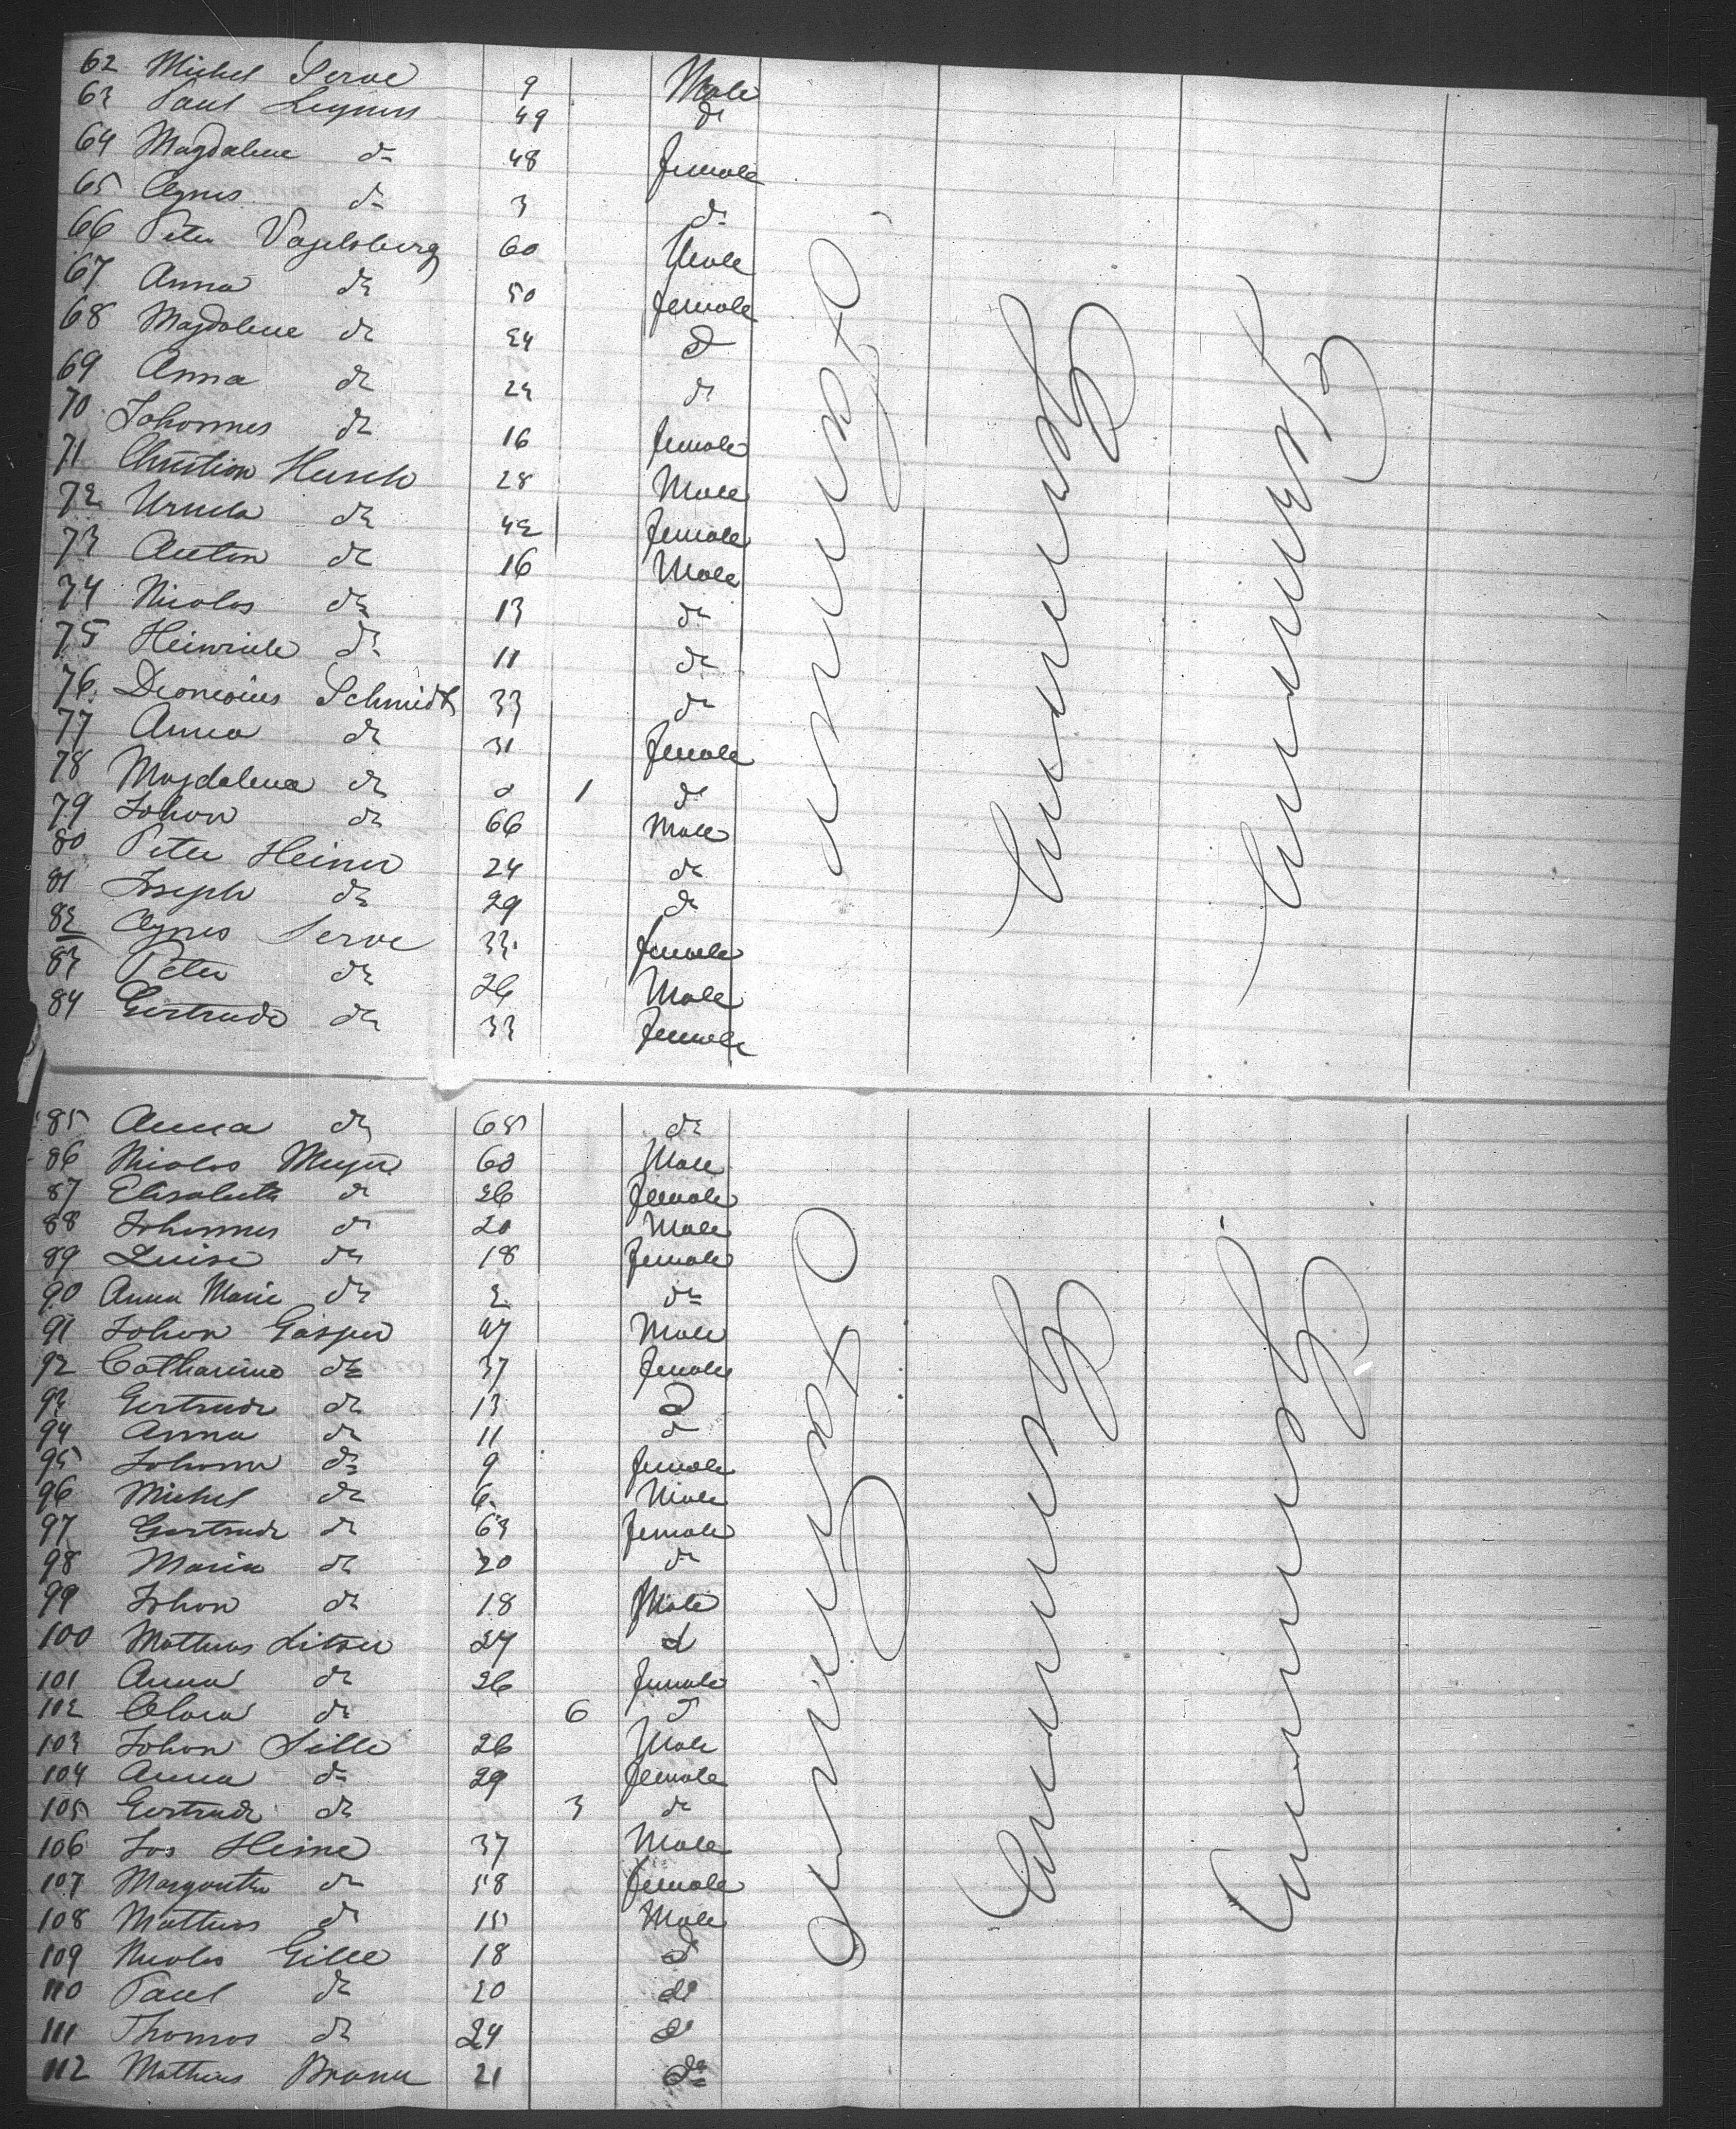 62 Michel Serve 9 Male
63 Paul 49 do
64 Magdalene do 48 female
65 Agnes do 3 do
66 Peter Vogelsberg 60 Male
67 Anna do 50 female
68 Magdalene do 24 do
69 Anna do 23 do
70 Johannes do 16 female
71 Christian Hersch 28 Male
72 Ursula do 42 female
73 Anton do 16 Male
74 Nicolas do 13 do
75 Heinrich do 11 do
76 Schmidt 33 do
77 Anna do 31 female
78 Magdalena do 1 do
79 Johan do 66 Male
80 Peter Heiner 24 do
81 Joseph do 29 do
82 Agnes Serve 33 female
83 Peter do 26 Male
84 Gertrude do 33 female
Germany
Germany
85 Anna do 65 do
86 Nicolas Meyer 60 Male
87 Elisabeth do 26 female
88 Johannes do 20 Male
89 Luise do 18 female
90 Anna Marie do 2 do
91 Johan Gasper 47 Male
92 Catharine do 37 female
93 Gertrude do 13 do
94 Anna do 11 do
95 Johann do 9 female
96 Michel do 6 Male
97 Gertrude do 63 female
98 Maria do 20 do
99 Johan do 18 Male
100 Mathias 27 d
101 Anna do 26 female
102 Clara do 6 do
103 Johan Sille 26 Male
104 Anna do 29 female
105 Gertrude do 3 do
106 Jos Heine 37 Male
107 Margretha do 58 female
108 Mathias do 15 Male
109 Nicolas Gille 18 do
110 Paul do 20 do
111 Thomas do 24 do
112 Mathias Braun 21 do
Germany
Germany